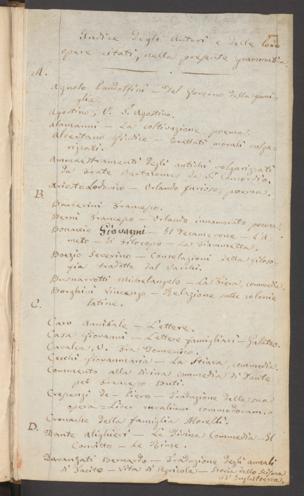 Indice degli Autori e delle loro
opere citati, nella presente grammatica
A.
Agnolo Pandolfini — Del governo della fami-
glia.
Agostino, V. S. Agostino.
Alamanni — La coltivazione, poema.
Albertano Giudice — Trattati morali volga-
rizzati.
Ammaestramenti degli antichi volgarizzati
da Frate Bartolommeo da S. Concordio.
Ariosto Lodovico — Orlando furioso, poema.
B.
Barberini Francesco.
Berni Francesco — Orlando innamorato poema.
Boccaccio Giovanni — Il Decamerone — L'A
meto — Il Filocopo — La Fiammetta.
Boezio Severino — Consolazioni della filoso-
fia tradotte dal Varchi.
Buonarrotti Michelangelo — La Fiera, commedia.
Borghini Vincenzo — Relazione sulle colonie
latine.
C.
Caro Annibale — Lettere.
Casa Giovanni — Lettere famigliari — Galateo.
Cavalca, V. Fra Domenico.
Cecchi Giovanmaria — La Stiava, commedia.
Commento alla divina commedia di Dante
del Francesco Buti.
Crescenzi de — Piero — Traduzione della sua
opera — Liber ruralium commodorum.
Cronache della famiglia Morelli.
D.
Dante Alighieri — La Divina Commedia — Il
Convito — Le Rime.
Davanzati Bernardo — Traduzione degli annali
di Tacito — Vita di Agricola — Storia dello Scisma
d'Inghilterra.